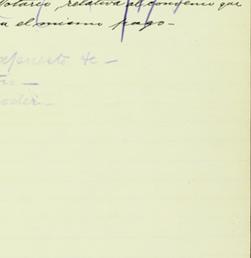 Notario, relativa al convenio que
a el mismo pago.—
apuesto de —
oder.—